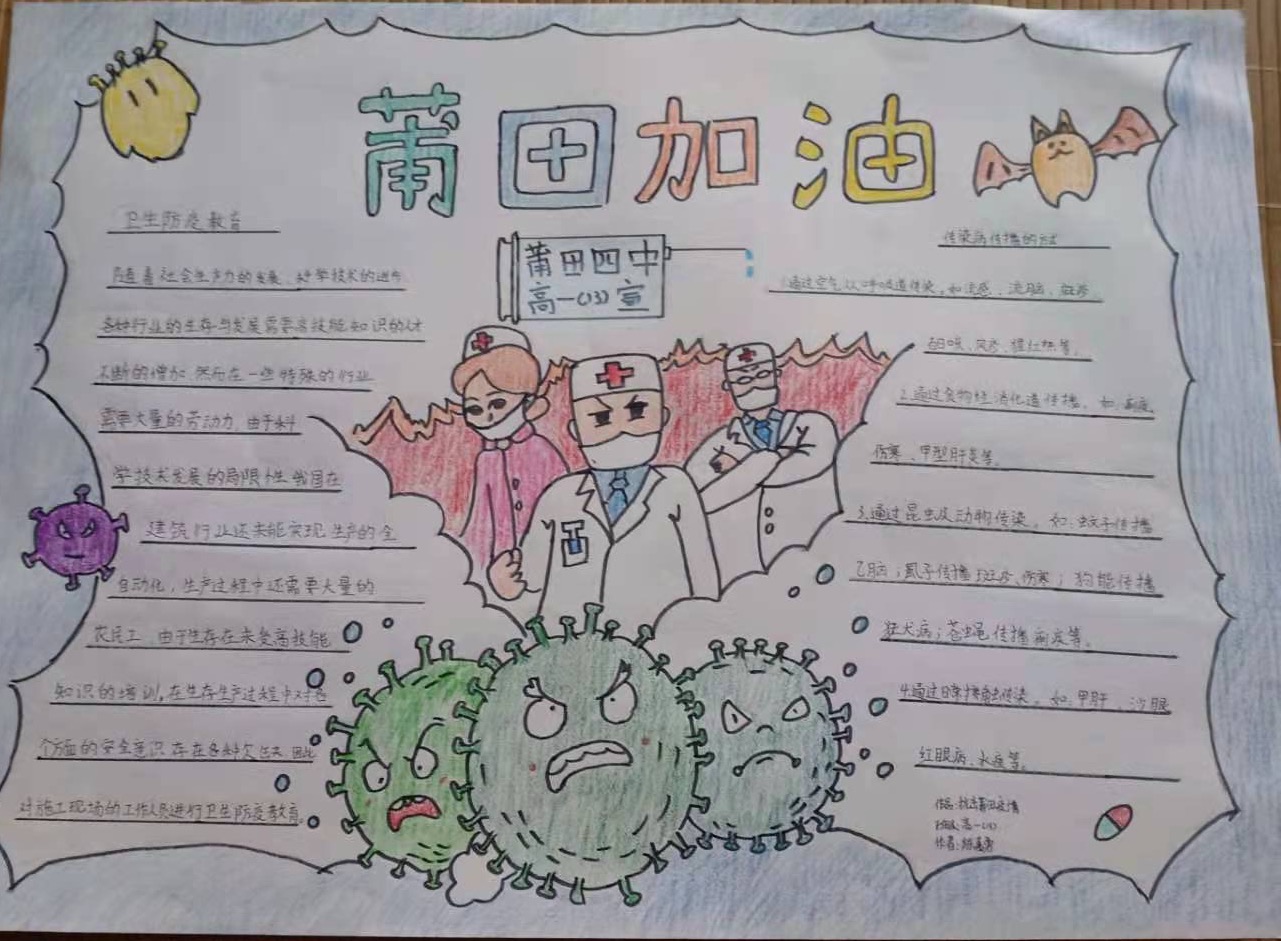 莆田加油
莆田四中
高一(13)宣
卫生防疫教育
随着社会生产力的发展、科学技术的进步
各种行业的生存与发展需要高技能知识的人才
不断的增加,然而在一些特殊的行业
需要大量的劳动力,由于科
学技术发展的局限性我国在
建筑行业还未能实现生产的全
自动化,生产过程中还需要大量的
农民工,由于生存在未受高技能
知识的培训,在生存生产过程中对各
个方面的安全意识存在各种欠缺,因此
对施工现场的工作人员进行卫生防疫教育
传染病传播的方式
1.通过空气以呼吸道传染。如流感、流脑、麻疹、
百日咳、风疹、猩红热等。
2.通过食物经消化道传播。如:痢疾、
伤寒、甲型肝炎等。
3.通过昆虫及动物传染。如:蚊子传播
乙脑;虱子传播斑疹、伤寒;狗能传播
狂犬病;苍蝇传播痢疾等。
4.通过日常接触传染。如:甲肝、沙眼
红眼病、水痘等。
作品:抗击莆田疫情
班级:高一(13)
作者: